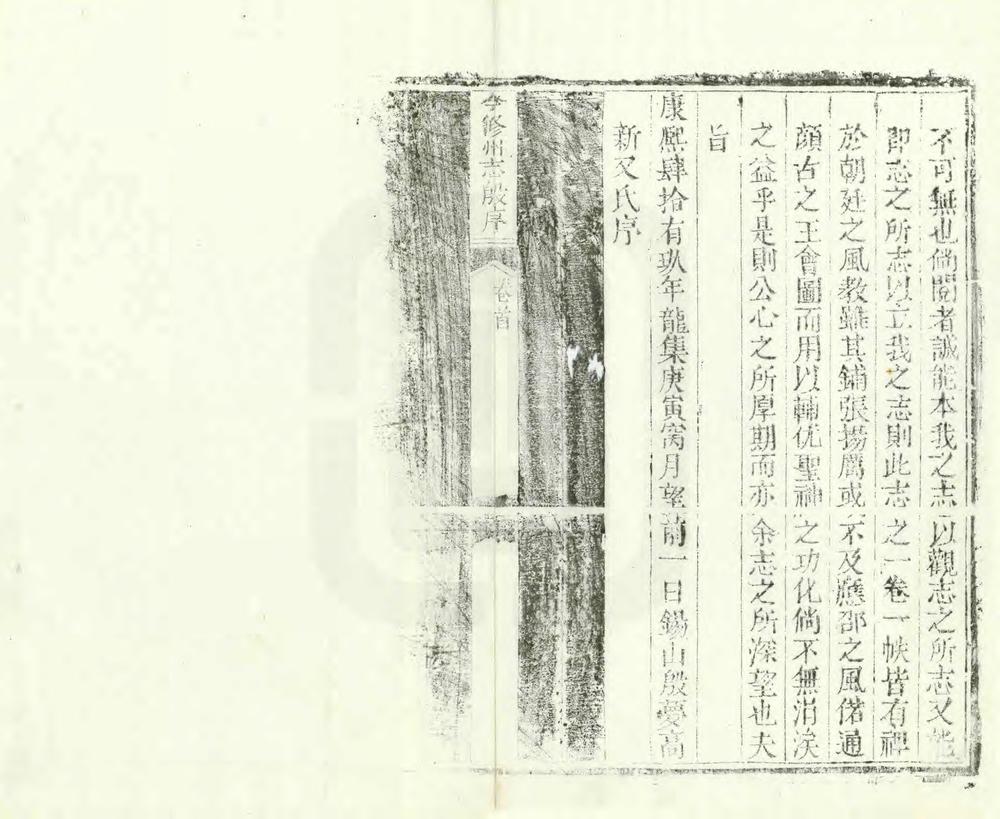 不可無也倘閱者誠能本我之志以觀志之所志又能
即志之所志以立我之志則此志之一卷一帙皆有裨
於朝廷之風教雖其鋪張揚厲或不及應邵之風偖通
顏古之王會圖而用以輔優聖神之功化倘不無涓涘
之益乎是則公心之所厚期而亦余志之所深望也夫
旨
康熙肆拾有玖年龍集庚寅窩月望前一日錫山殷憂高
新又氏序
修州志殷序
卷首